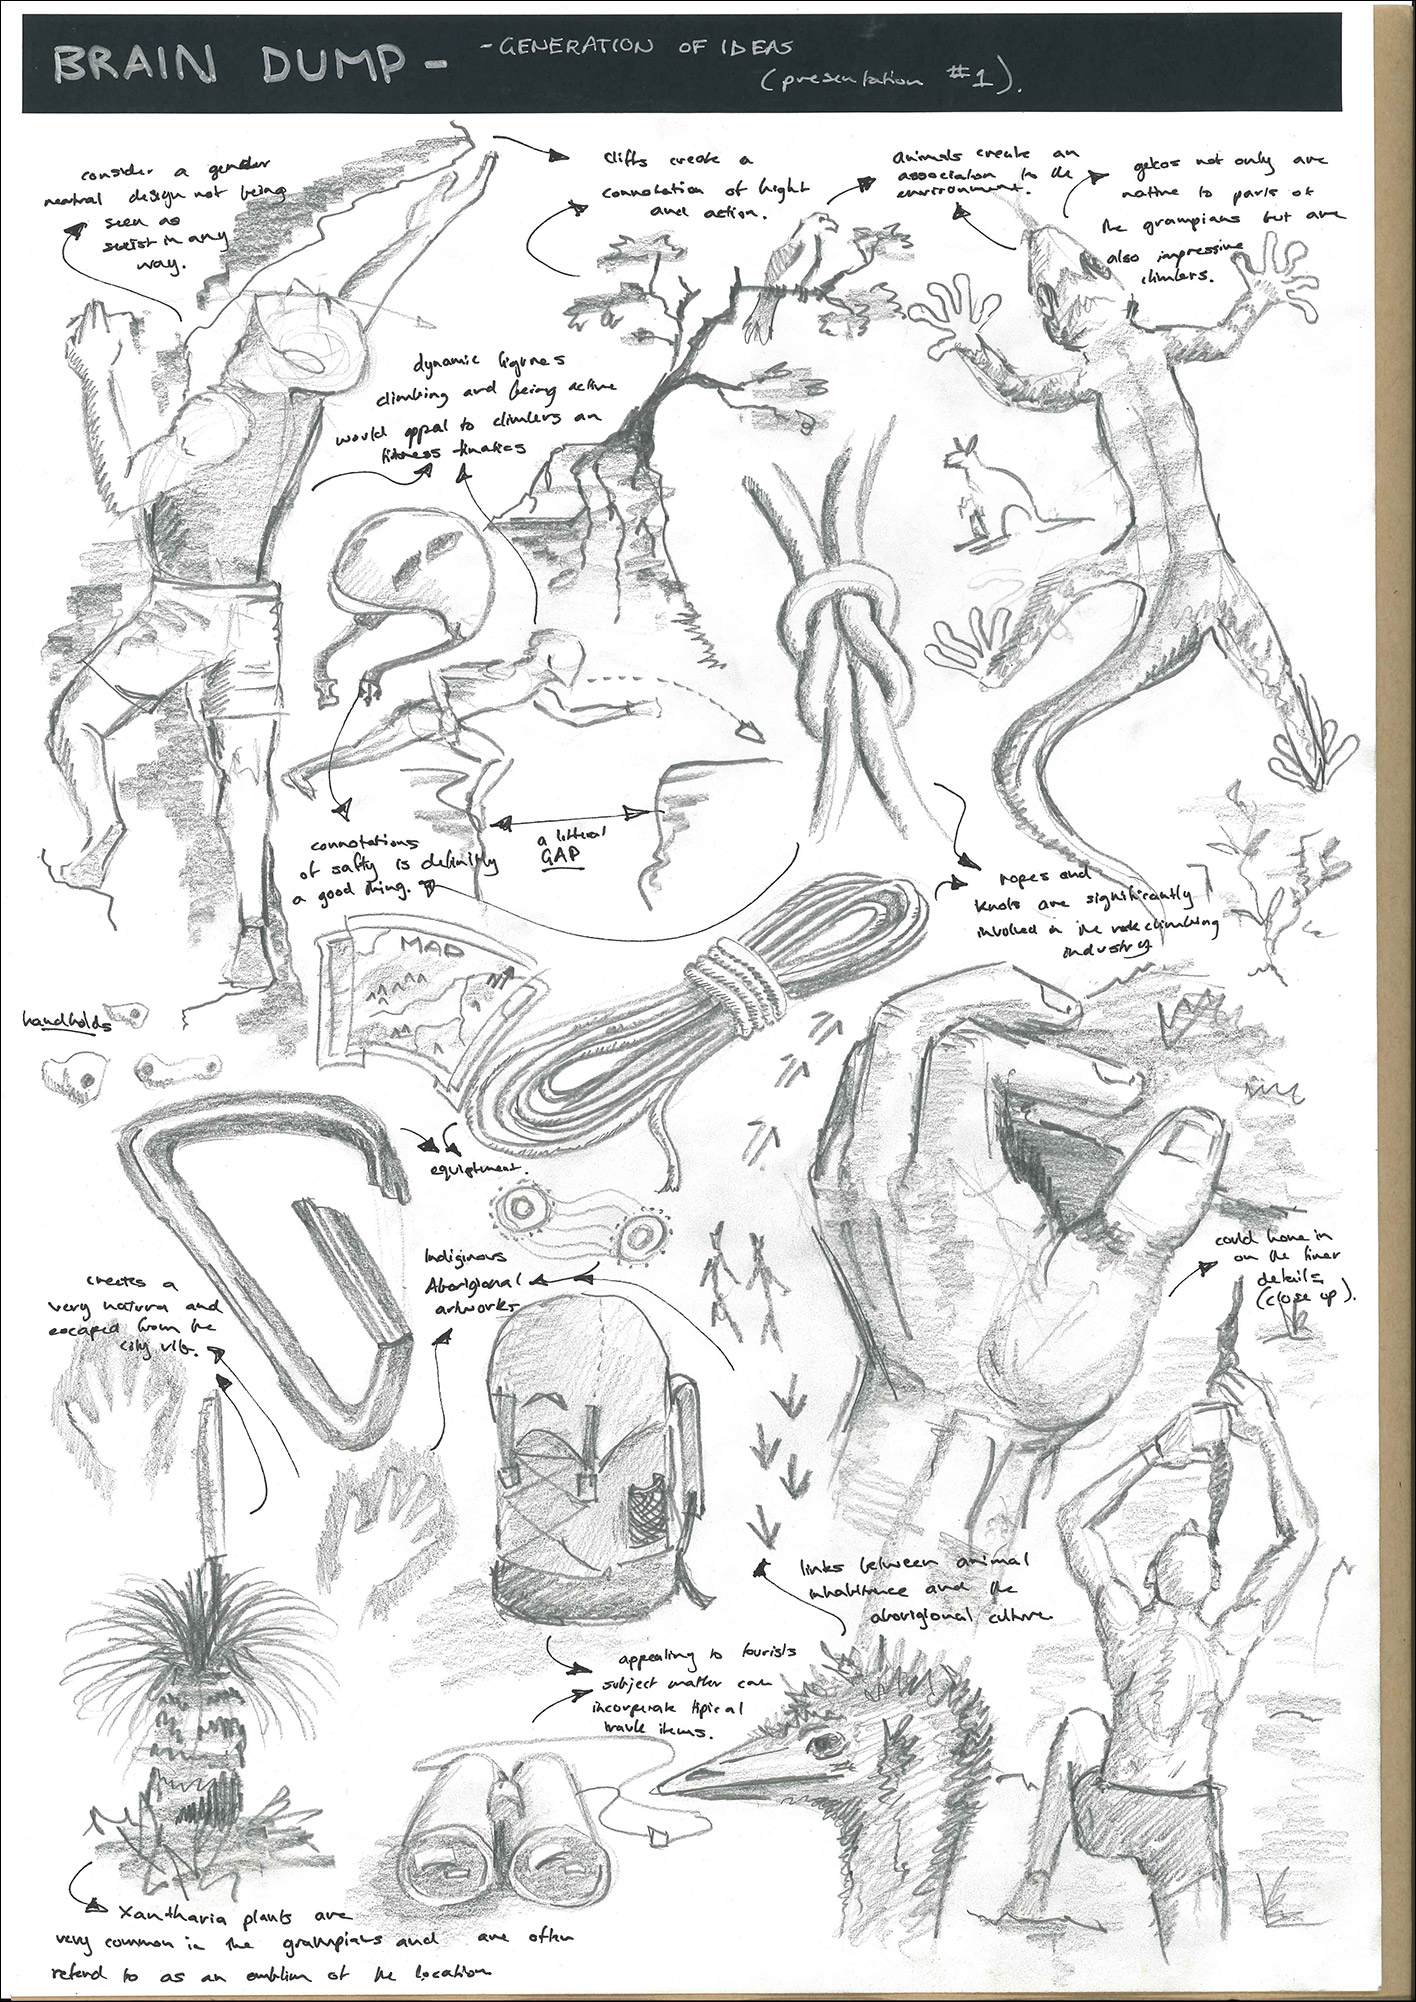 BRAIN DUMP -
- GENERATION OF IDEAS
(presentation #1).
consider a gender
neutral design not being
seen as
sexist in any
way.
cliffs create a
connotation of hight
and action.
animals create an
association to the
environment.
gekos not only are
native to parts of
the grampians but are
also impressive
climbers.
dynamic figures
climbing and being active
would appal to climbers an
fitness finatics
connotations
of safty is definitly
a good thing.
a litteral
GAP
ropes and
knots are significantly
involved in the rock climbing
industry
MAP
N
handholds
equiptment.
Indiginous
Aborigional
artworks
creates a
very natura and
escaped from the
city vibe.
could hone in
on the finer
details
(close up).
links between animal
inhabitance and the
aborigional culture.
appealing to tourists
subject matter can
incorperate tipical
travle items.
Xantharia plants are
very common in the grampians and are often
referd to as an emblim of the location